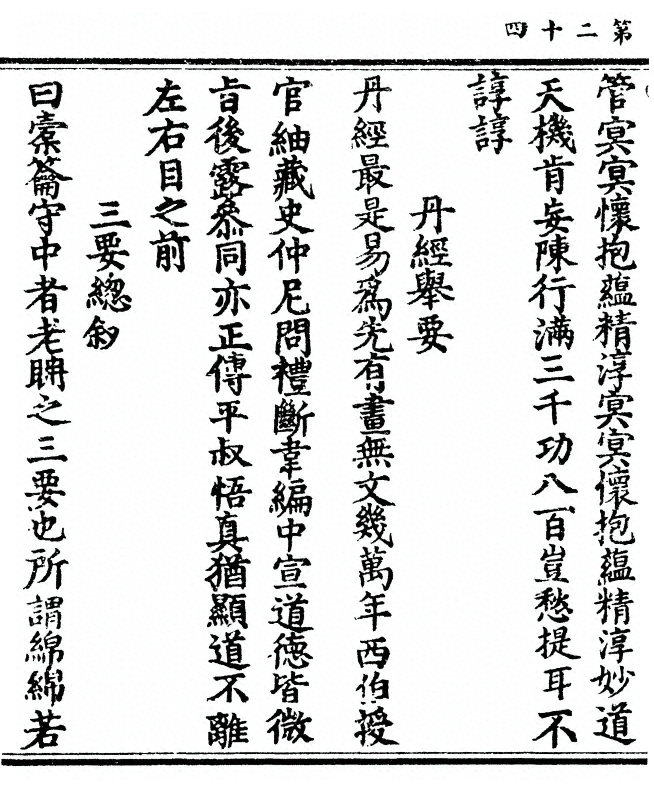 第二十四
管㝠㝠懷抱蘊精淳㝠㝠懷抱蘊精淳妙道
天機肯妄陳行滿三千功八百豈愁提耳不
諄諄
丹經舉要
丹經最是易爲先有畫無文幾萬年西伯授
官紬藏史仲尼問禮斷韋編中宣道德皆微
旨後露叅同亦正傳平叔悟真猶顯道不離
左右目之前
三要總叙
曰橐籥守中者老耼之三要也所謂綿綿若